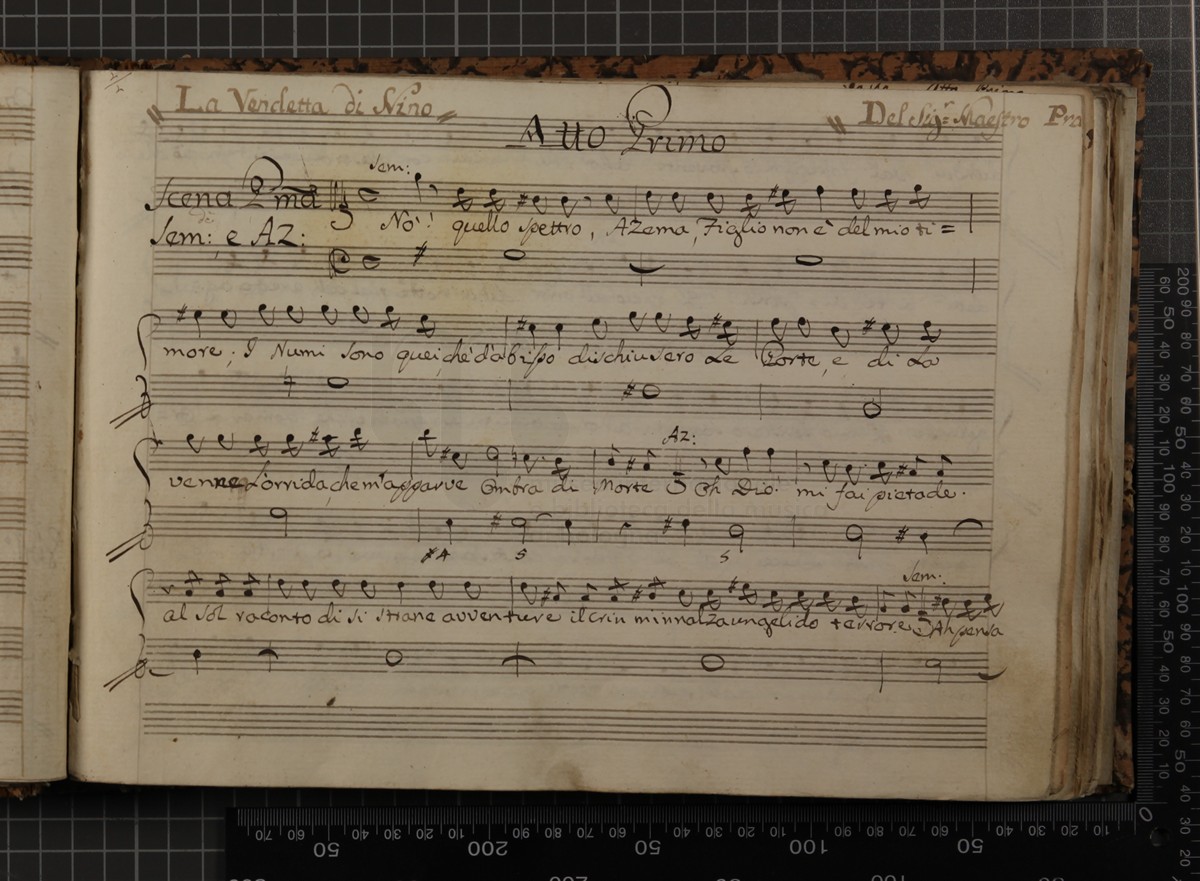 „ La Vendetta di Nino „
„ Del Sig.r Maestro Pra
Atto Primo
Sem:
Scena Pma
di
Sem: e Az:
No! quello spettro, Azema, Figlio non è del mio ti=
more; I Numi sono quei che d'abisso dischiusero Le Porte, e di La
Az:
venne L'orrida che m'apparve Ombra di Morte Oh Dio. mi fai pietade.
#4 5 5
Sem:
al sol raconto di si strane avventure il crin m'innalza un gelido terrore. Ah pensa